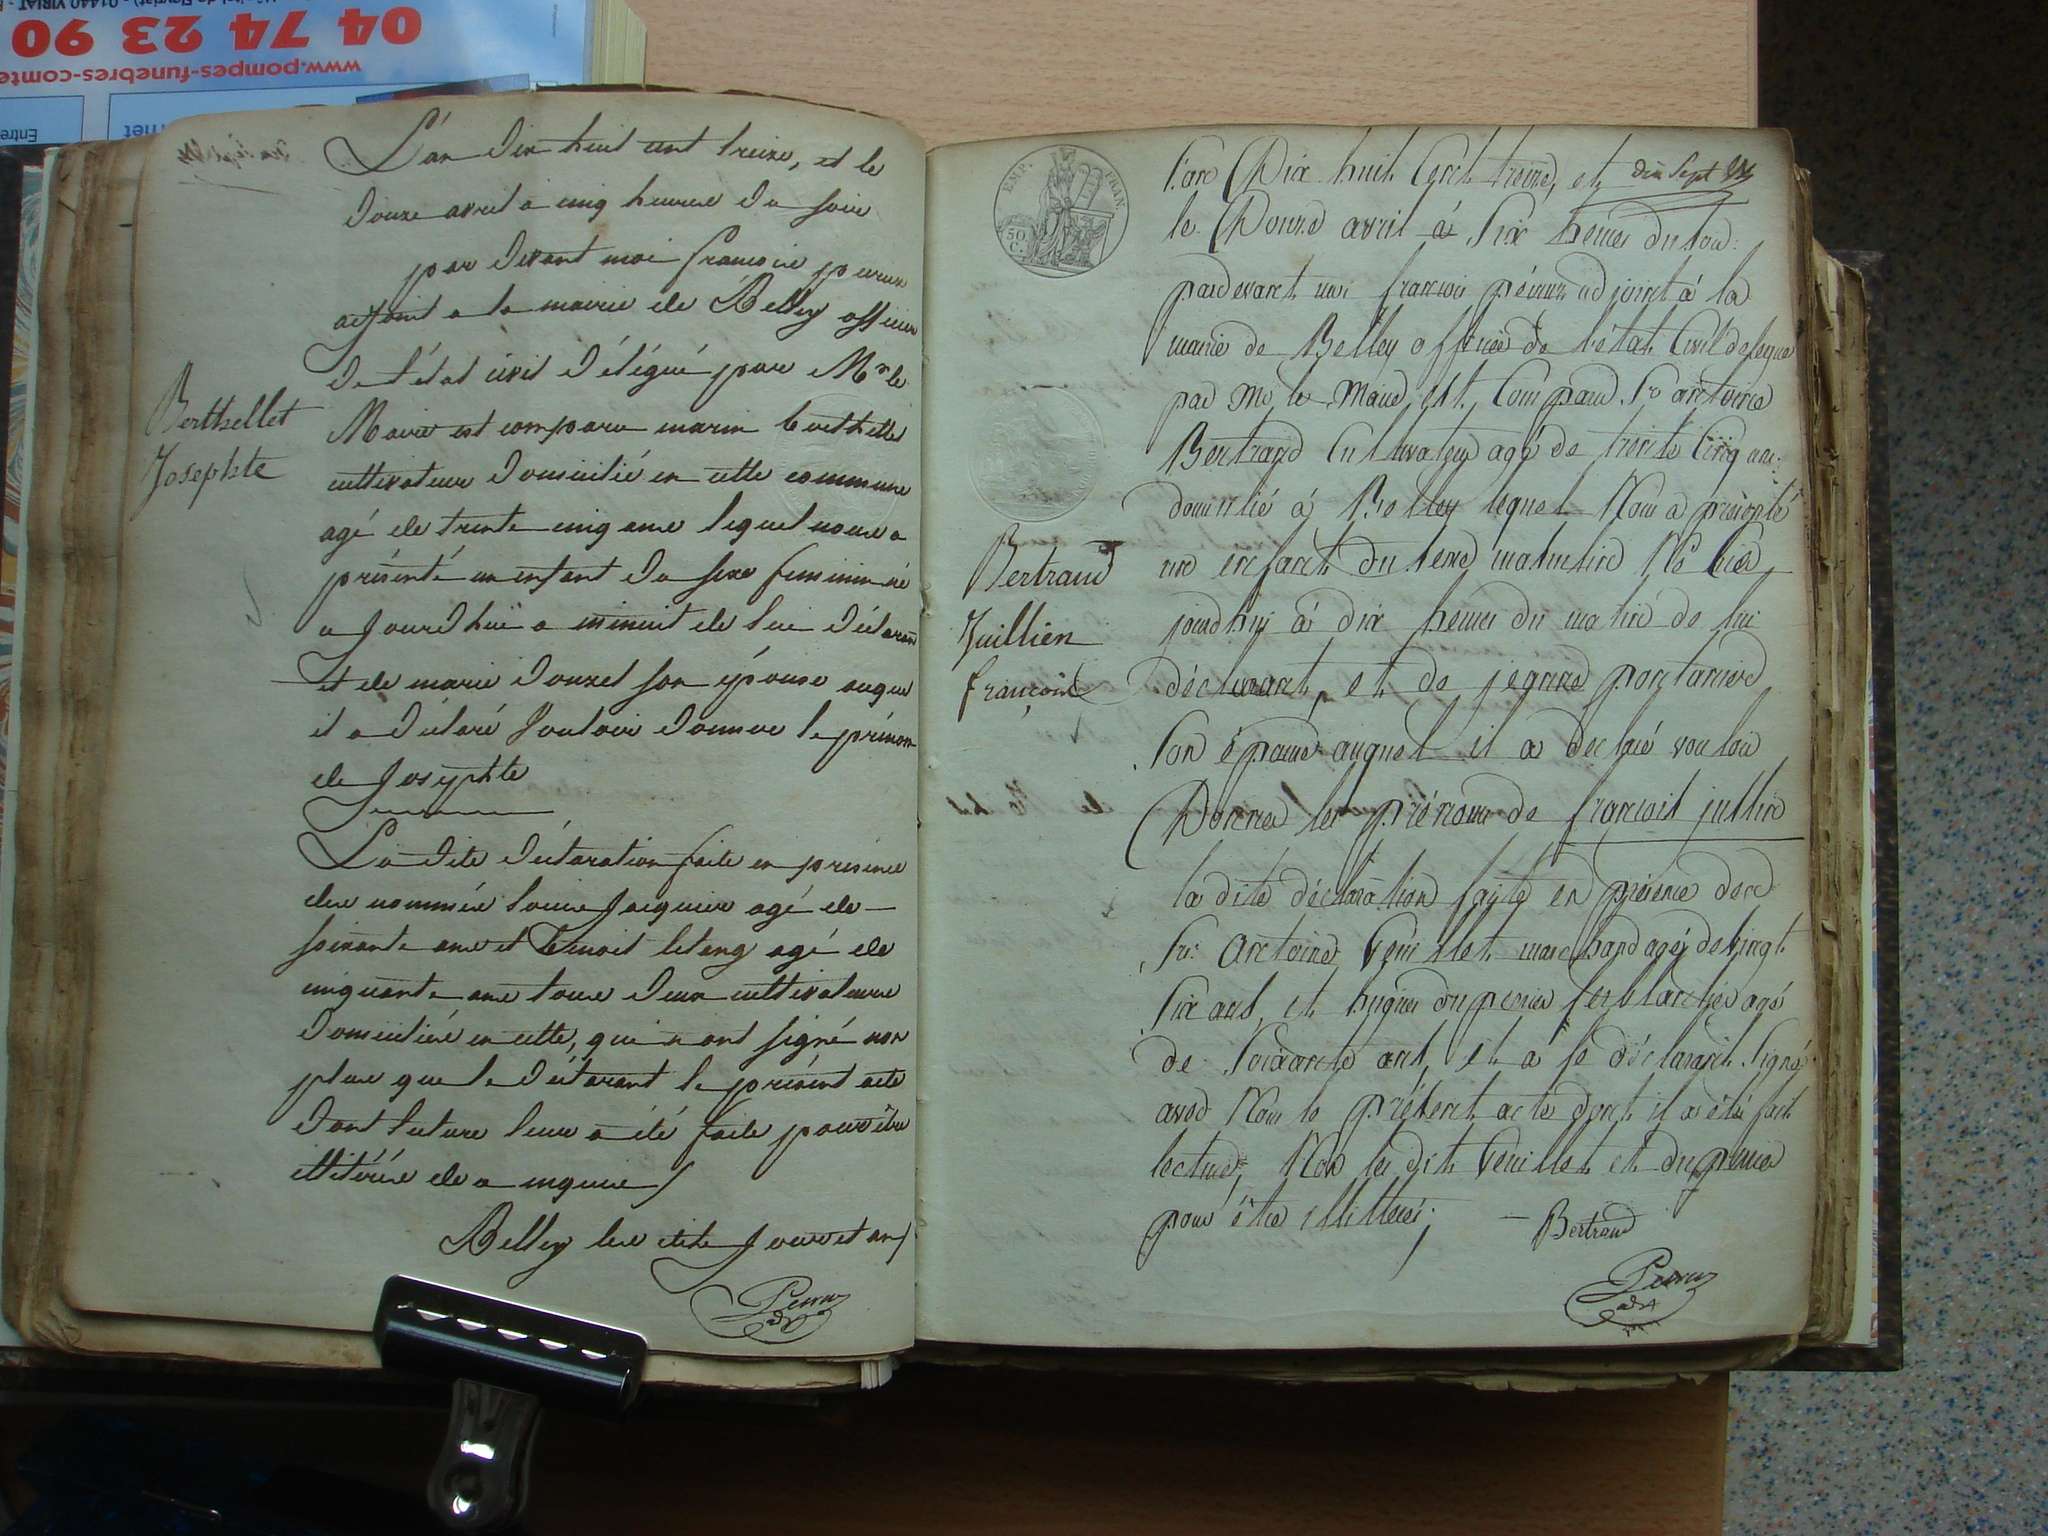 04 74 23 90
www.pompes-funebres-comte
Entre
L'an dix huit cent treize, et le
douze avril a cinq heures du soir
par devant moi françois perrus
adjoint a la mairie de Belley officier
de l'état civil délégué par Mr le
Maire est comparu marin berthellet
cultivateur domicilié en cette commune
agé de trente cinq ans lequel nous a
présenté un enfant du sexe feminin né
a jourdhui a minuit de lui déclarant
et de marie douzel son épouse auquel
il a déclaré vouloir donner le prénom
de Josephte
La dite déclaration faite en présence
des nommés louis Jacquier agé de
soixante ans et benoit letang agé de
cinquante ans tous deux cultivateurs
domiciliés en cette, qui n'ont signé non
plus que le déclarant le présent acte
dont lecture leur a été faite pour être
illitérés de ce enquis
Belley les dits jour et an
Berthellet
Josephte
EMP. FRAN.
50 C.
dix Sept
l'an Dix huit Cent treize, et
le Douze avril à Six heures du soir
pardevant moi françois perrus adjoint à la
mairie de Belley officier de l'état Civil delegué
par Mr le Maire, est Comparu Sr antoine
Bertrand Cultivateur agé de trente Cinq ans
domicilié à Belley lequel Nous a présenté
un enfant du sexe masculin Né Cejourdhuj
à dix heures du matin de lui
déclarant, et de jeanne
Son épouse auquel il a déclaré vouloir
Donner les prénoms de françois jullin
la dite déclaration faite en présence des
Srs Antoine marchand agé de vingt
Six ans, et hugues ferblantier agé
de Soixante ans, et a le déclarant Signé
avec Nous le présent acte dont il a été fait
lecture, Non les dits et
pour être illitterés;
Bertrand
Bertrand
Juillien
françois